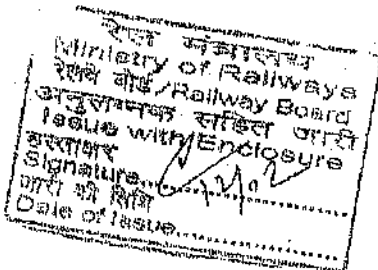 रेल मंत्रालय
Ministry of Railways
रेलवे बोर्ड/Railway Board
अनुलग्नक सहित जारी
Issue with Enclosure
हस्ताक्षर
Signature
जारी की तिथि
Date of Issue